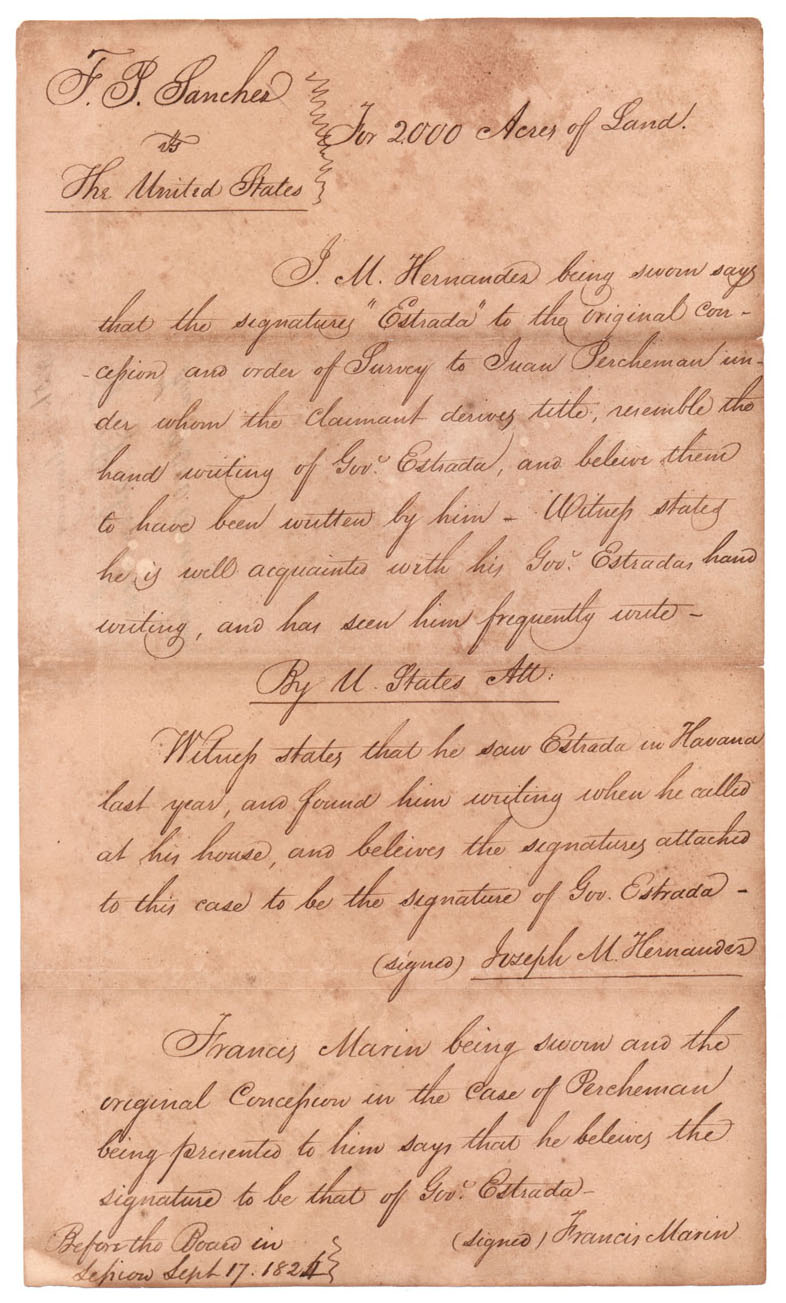 F. P. Sanchez
vs
The United States
For 2000 Acres of Land.
J. M. Hernandez being sworn says
that the signatures "Estrada" to the original con-
-cession and order of Survey to Juan Percheman un-
der whom the claimant derives title, resemble the
hand writing of Govr. Estrada, and beleive them
to have been written by him - Witness states
he is well acquainted with his Govr. Estradas hand
writing, and has seen him frequently write -
By U. States Att:
Witness states that he saw Estrada in Havana
last year, and found him writing when he called
at his house, and beleives the signatures attached
to this case to be the signature of Gov. Estrada -
(signed) Joseph M. Hernandez
Francis Marin being sworn and the
original Concession in the case of Percheman
being presented to him says that he beleives the
signature to be that of Govr. Estrada -
(signed) Francis Marin
Before the Board in
Session Sept 17. 1824